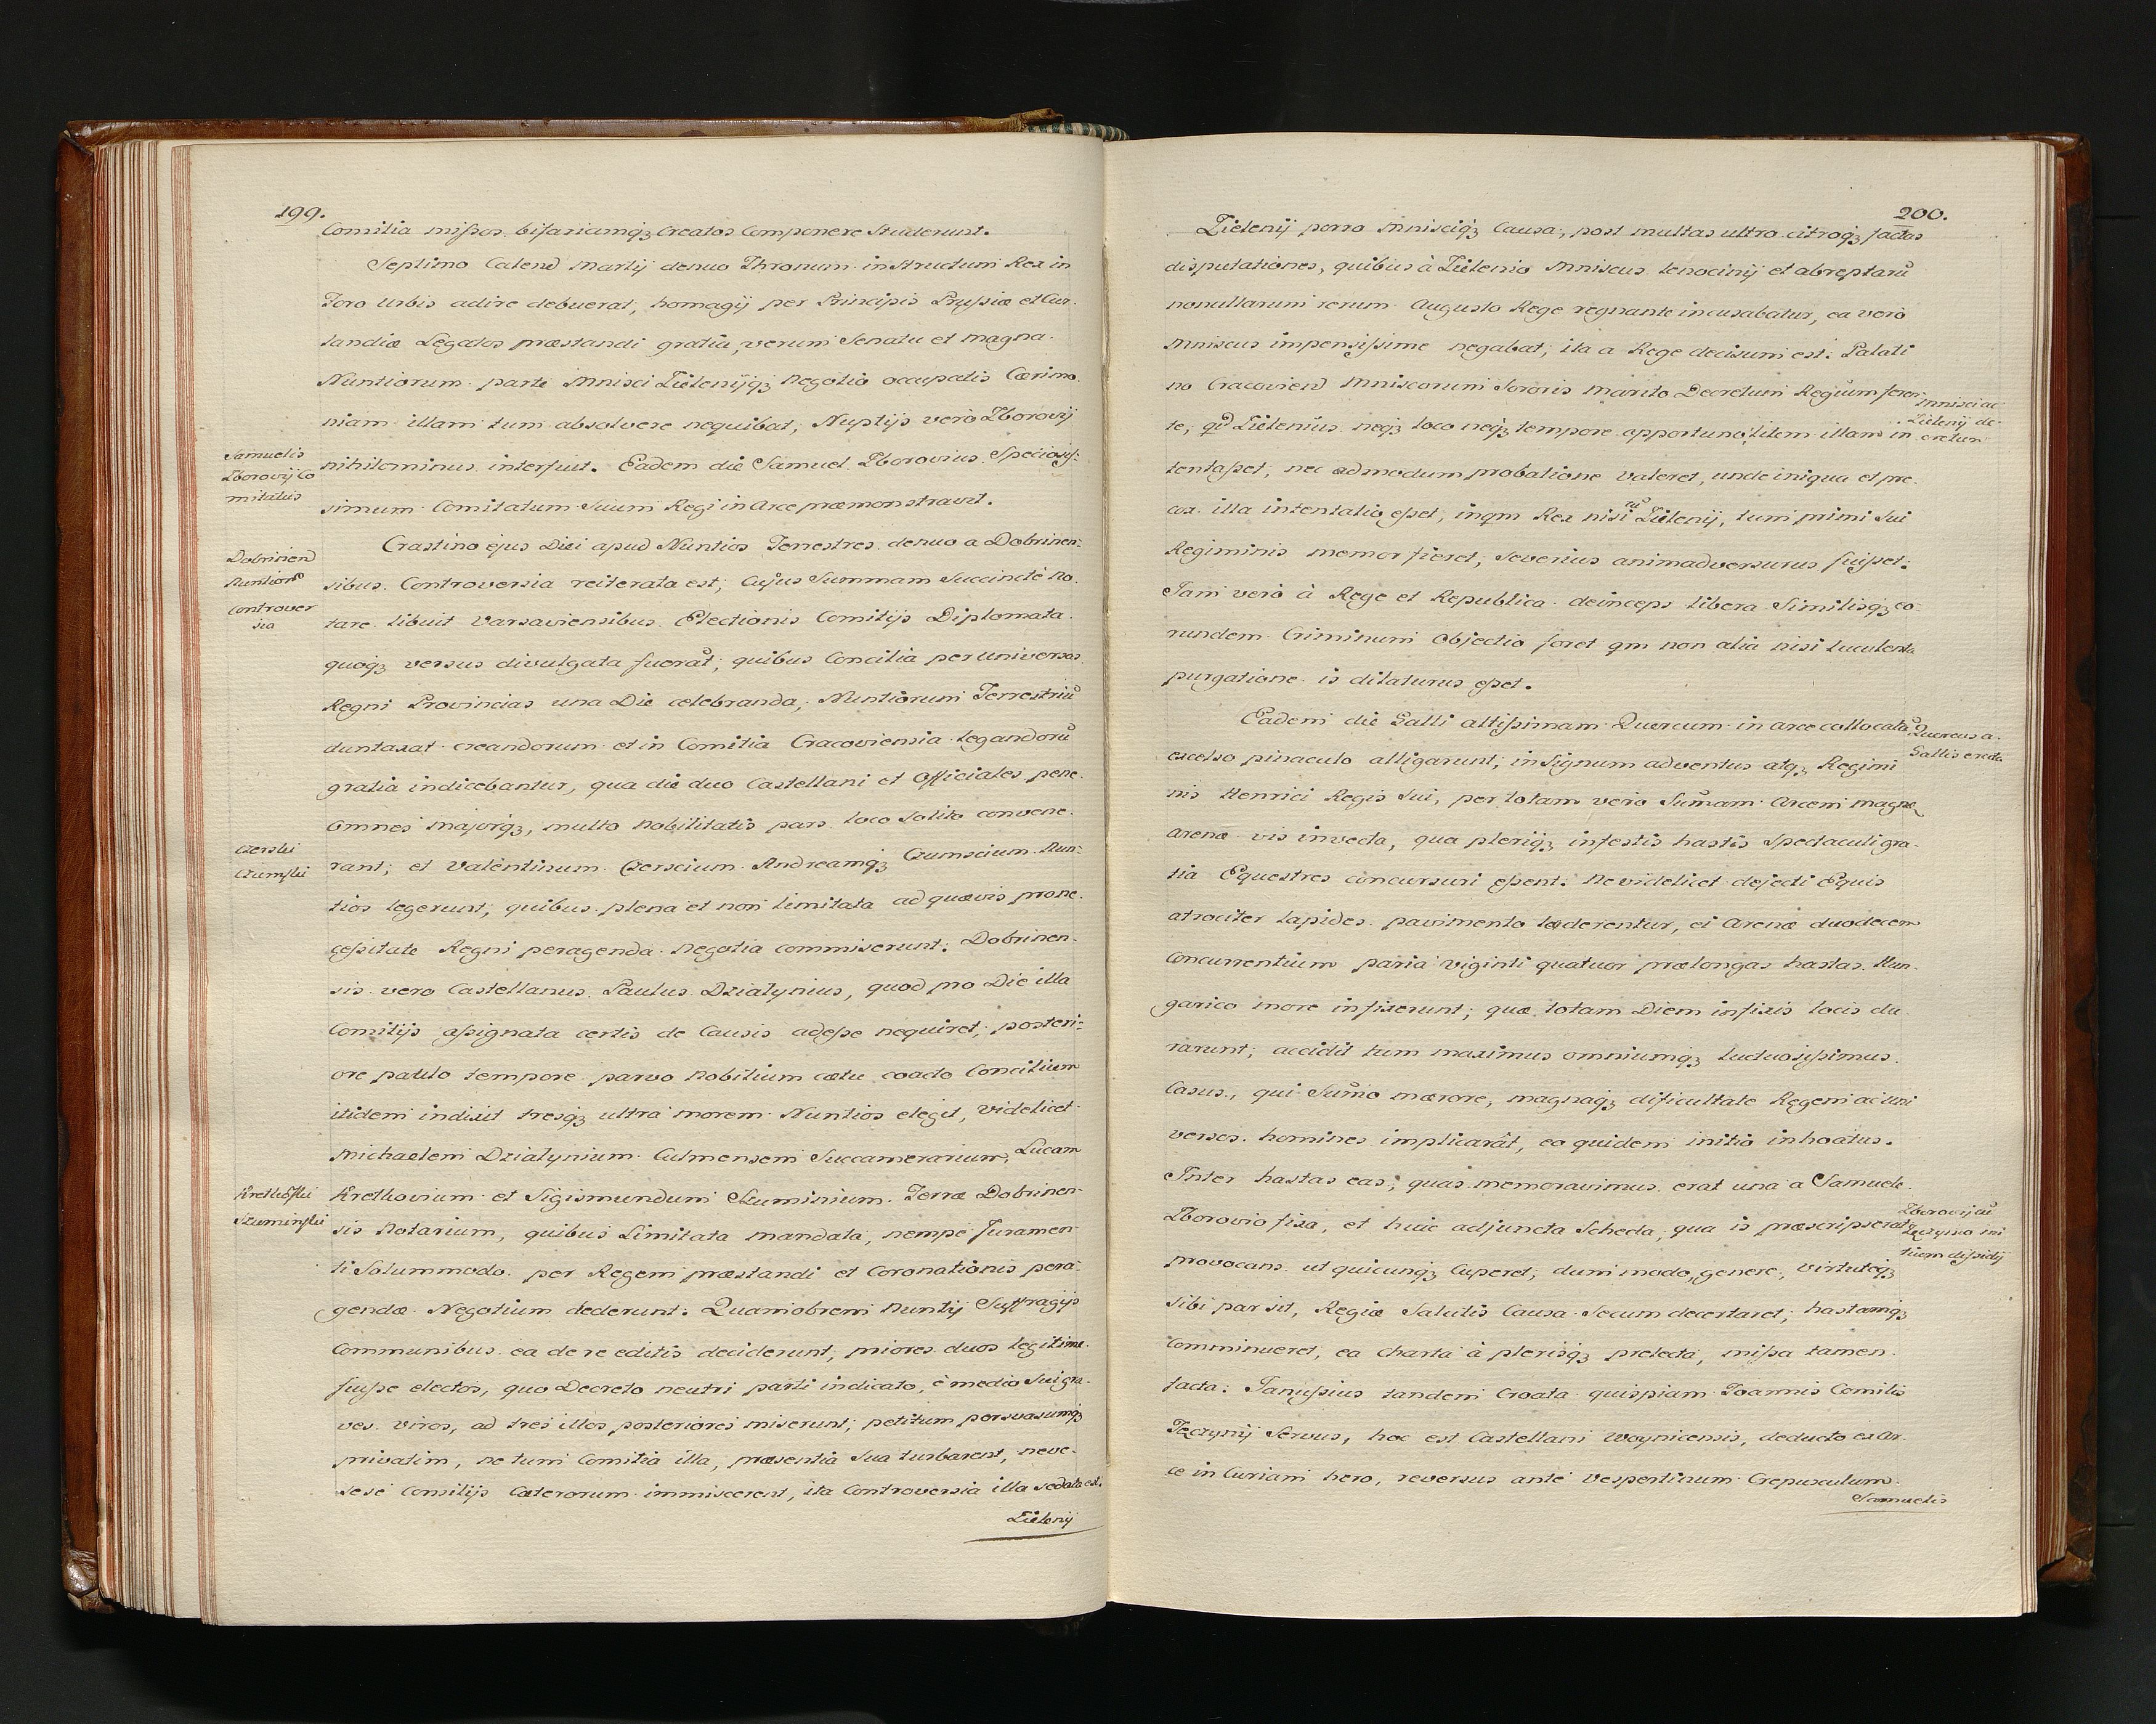 199.
Comitia missos bifariamqȝ Creatos Componere Studerunt.
Septimo Calend Martij denuo Thronum inStructum Rex in
Foro Urbis adire debuerat, homagij per Principis Prussiæ et Cur-
landiæ Legatos præstandi gratia, verum Senatu et magna
Nuntiorum parte Mnisci Zielenijqȝ negotio occupatis Cærimo-
niam illam tum absolvere nequibat, Nuptijs verò Zborovij
Samuelis
Zborovij Co
mitatus
nihilominus interfuit. Eadem die Samuel Zborovius Speciosis-
simum Comitatum Suum Regi in Arce præmonstravit.
Crastino ejus Diei apud Nuntios Terrestres denuo a Dobrinen-
Dobrinen
Nuntiorũ
Controver
sia
sibus Controversia reiterata est; Cujus Summam Succinctè no-
tare libuit Varsaviensibus Electionis Comitijs Diplomata
quoqȝ versus divulgata fuerãt; quibus Concilia per universas
Regni Provincias una Die celebranda, Nuntiorum Terrestriũ
duntaxat creandorum et in Comitia Cracoviensia legandorũ
gratia indicebantur, qua die duo Castellani et Officiales pene
omnes majorqȝ, multo Nobilitatis pars loco Solito convene-
Czerski
Czumski
rant; et Valentinum Czerscium Andreamqȝ Czumscium Nun-
tios legerunt, quibus plena et non limitata ad quævis prone-
cessitate Regni peragenda negotia commiserunt: Dobrinen-
sis vero Castellanus Paulus Dzialynius, quod pro Die illa
Comitijs assignata certis de Causis adesse nequiret, posteri-
ore paulo tempore parvo Nobilium cætu coacto Concilium
itidem indixit tresqȝ ultra morem Nuntios elegit, videlicet
Michaelem Dzialynium Culmensem Succamerarium, Lucam
Krethofski
Szuminski
Krethovium et Sigismundum Szuminium Terræ Dobrinen-
sis Notarium, quibus Limitata mandata, nempe Juramen-
ti Solummodo per Regem præstandi et Coronationis pera-
gendæ Negotium dederunt: Quamobrem Nuntij Suffragijs
Communibus ea de re editis deciderunt, priores duos legitime
fuisse electos, quo Decreto neutri parti indicato, è medio Sui gra-
ves viros, ad tres illos posteriores miserunt; petitum persvasumqȝ
privatim, ne tum Comitia illa, præsentia Sua turbarent, neve
sese Consilijs Cæterorum immiscerent, ita Controversia illa sedata est.
Zielenij
200.
Zielenij porro Mnisciqȝ Causa, post multas ultro citroqȝ factas
disputationes, quibus à Zielenio Mniscus lenocinij et abreptarũ
nonullarum rerum Augusto Rege regnante incusabatur, ea verò
Mniscus impensissime negabat; ita a Rege decisum est: Palati
no Cracovien Mniscorum Sororis marito Decretum Regium feren-
Mnisci ac
Zielenij de-
cretum
te, qd Zielenius neqȝ loco neqȝ tempore opportuno litem illam in
tentasset, nec admodum probatione valeret, unde iniqua et pre-
cox illa intentatio esset, inqm Rex nisi tũ Zielenij, tum primi Sui
Regiminis memor fieret, Severius animadversurus fuisset:
Jam verò à Rege et Republica deinceps libera Similisqȝ eo-
rundem Criminum Objectio foret qm non alia nisi luculenta
purgatione is dilaturus esset.
Eadem die Galli altissimam Quercum in arce collocatã
Quercus a
Gallis erecta
excelso pinaculo alligarunt, in Signum adventus atqȝ Regimi
nis Henrici Regis Sui, per totam vero Sum̃am Arcem magna
arenæ vis invecta, qua pleriqȝ infestis hastis Spectaculi gra-
tia Equestres concursuri essent: ne videlicet dejecti Equis
atrociter lapides pavimento læderentur, ei Arenæ duodecem
Concurrentium paria viginti quatuor prælongas hastas Hun-
garico more infixerunt; quæ totam Diem infixis locis du-
rarunt; accidit tum maximus omniumqȝ luctuosissimus
Casus, qui Sum̃o mærore, magnaqȝ dificultate Regem ac uni
versos homines implicarât, ea quidem initio inhoatus.
Inter hastas eas, quas memoravimus erat una a Samuele
Zborovij cũ
Teczynio ini
tium dissidij
Zborovio fixa, et huic adjuncta Scheda, qua is præscripserat
provocans ut quicunqȝ Cuperet, dum modo genere, virtuteqȝ
sibi par sit, Regiæ Salutis Causa Secum decertaret, hastamqȝ
Comminueret, ea Charta à plerisqȝ prelecta, missa tamen
facta: Janussius tandem Croata quispiam Joannis Comitis
Teczynij Servus, hoc est Castellani Woynicensis, deducto ex Ar-
ce in Curiam hero, reversus ante Vespertinum Crepusculum
Samuelis